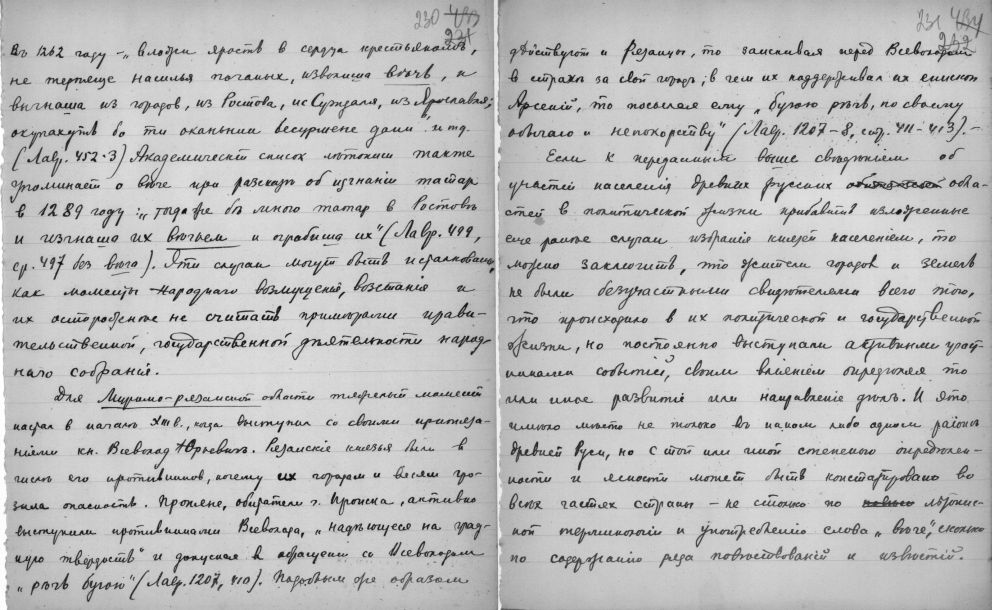 230 433
221
Въ 1262 году – "вложи ярость в сердца крестьяномъ,
не терпяще насилья поганых, изволиша вѣчь, и
выгнаша из городов, из Ростова, ис Суждаля, из Ярославля;
окупахуть бо ти оканьнии бесурмене дани" и тд.
(Лавр. 452-3) Академическiй список лѣтописи также
упоминает о вѣче при разсказѣ об изгнанiи татар
в 1289 году: "тогда же бѣ много татар в Ростовѣ
и изгнаша их вѣчьем и ограбиша их" (Лавр. 499,
ср. 497 без вѣча). Эти случаи могут быть истолкованы,
как моменты народнаго возмущенiя, возстанiя и
их осторожнее не считать примѣрами прави-
тельственной, государственной дѣятельности народ-
наго собранiя.
Для Муромо-рязанской области тяжелый момент
настал в началѣ XIII в., когда выступил со своими притяза-
нiями кн. Всеволод Юрьевич. Рязанскiе князья были в
числѣ его противников, почему их городам и весям гро-
зила опасность. Проняне, обыватели г. Пронска, активно
выступили противниками Всеволода, "надѣющеся на град-
ную твердость" и допуская в обращении со Всеволодом
"рѣчь буюю" (Лавр. 1207, 410). Подобным же образом
231 434
222
дѣйствуют и Рязанцы, то заискивая перед Всеволодом
в страхѣ за свой город; в чем их поддерживал их епископ
Арсенiй, то посылая ему "буюю рѣчь, по своему
обычаю и непокорству" (Лавр. 1207-8, стр. 411-413). –
Если к переданным выше свѣдѣнiем об
участiи населенiя древних русских обла-
стей в политической жизни прибавить изложенные
еще ранее случаи избранiя князей населенiем, то
можно заключить, что жители городов и земель
не были безучастными свидѣтелями всего того,
что происходило в их политической и государственной
жизни, но постоянно выступали активными участ-
никами событiй, своим влiянiем опредѣляя то
или иное развитiе или направленiе дѣл. И это
имѣло мѣсто не только въ каком либо одном районѣ
древней Руси, но с той или иной степенью опредѣлен-
ности и ясности может быть констатировано во
всѣх частях страны – не столько по лѣтопис-
ной терминологiи и употребленiю слова "вѣче", сколько
по содержанiю ряда повѣствованiй и извѣстiй.